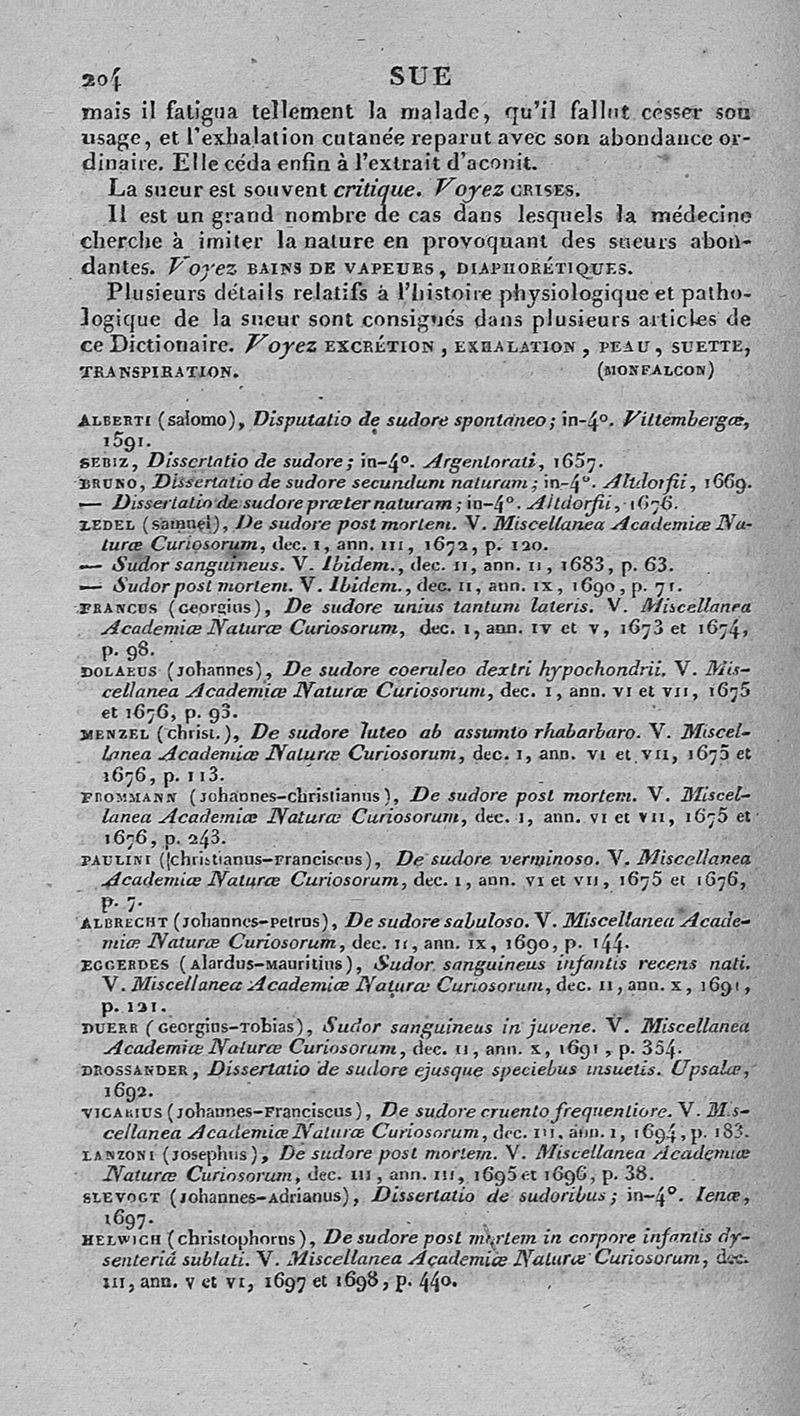 204 SUE
mais il fatigua tellement la malade, qu'il fallut cesser son
usage, et l'exhalation cutanée reparut avec son abondance or-
dinaire. Elle céda enfin à l'extrait d'aconit.
La sueur est souvent critique. Voyez CRISES.
Il est un grand nombre de cas dans lesquels la médecine
cherche à imiter la nature en provoquant des sueurs abon-
dantes. Voyez BAINS DE VAPEURS, DIAPHORÉTIQUES.
Plusieurs détails relatifs à l'histoire physiologique et patho-
logique de la sueur sont consignés dans plusieurs articles de
ce Dictionaire. Voyez EXCRÉTION, EXHALATION, PEAU, SUETTE,
TRANSPIRATION. (MONFALCON)
ALBERTI (salomo), Disputatio de sudore spontaneo; in-4°. Vittembergœ,
1591.
SEBIZ, Dissertatio de sudore; in-4°. Argentorati, 1657.
BRUNO, Dissertatio de sudore secundum naturam; in-4°. Altdorfii, 1669.
— Dissertatio de sudore prœter naturam; in-4°. Altdorfii, 1676.
LEDEL (samuel), De sudore post mortem. V. Miscellanea Academiœ Na-
turœ Curiosorum, dec. I, ann. III, 1672, p. 120.
— Sudor sanguineus. V. Ibidem., dec. II, ann. II, 1683, p. 63.
— Sudor post mortem. V. Ibidem., dec. II, ann. IX, 1690, p. 71.
FRANCUS (Georgius), De sudore unius tantum lateris. V. Miscellanea
Academiœ Naturœ Curiosorum, dec. I, ann. IV et V, 1673 et 1674,
p. 98.
DOLAEUS (Johannes), De sudore coeruleo dextri hypochondrii. V. Mis-
cellanea Academiœ Naturœ Curiosorum, dec. I, ann. VI et VII, 1675
et 1676, p. 93.
MENZEL (christ.), De sudore luteo ab assumto rhabarbaro. V. Miscel-
lanea Academiœ Naturœ Curiosorum, dec. I, ann. VI et VII, 1675 et
1676, p. 113.
FROMMANN (Johannes-christianus), De sudore post mortem. V. Miscel-
lanea Academiœ Naturœ Curiosorum, dec. I, ann. VI et VII, 1675 et
1676, p. 243.
PAULINI (christianus-Franciscus), De sudore verminoso. V. Miscellanea
Academiœ Naturœ Curiosorum, dec. I, ann. VI et VII, 1675 et 1676,
p. 7.
ALBRECHT (Johannes-Petrus), De sudore sabuloso. V. Miscellanea Acade-
miœ Naturœ Curiosorum, dec. II, ann. IX, 1690, p. 144.
EGGERDES (Alardus-Mauritius), Sudor sanguineus infantis recens nati.
V. Miscellanea Academiœ Naturœ Curiosorum, dec. II, ann. X, 1691,
p. 121.
DUERR (Georgius-Tobias), Sudor sanguineus in juvene. V. Miscellanea
Academiœ Naturœ Curiosorum, dec. II, ann. X, 1691, p. 354.
DROSSANDER, Dissertatio de sudore ejusque speciebus insuetis. Upsalœ,
1692.
VICARIUS (Johannes-Franciscus), De sudore cruento frequentiore. V. Mis-
cellanea Academiœ Naturœ Curiosorum, dec. III, ann. I, 1694, p. 183.
LANZONI (Josephus), De sudore post mortem. V. Miscellanea Academiœ
Naturœ Curiosorum, dec. III, ann. III, 1695 et 1696, p. 38.
SLEVOGT (Johannes-Adrianus), Dissertatio de sudoribus; in-4°. Ienœ,
1697.
HELWICH (christophorus), De sudore post mortem in corpore infantis dy-
senteriâ sublati. V. Miscellanea Academiœ Naturœ Curiosorum, dec.
III, ann. V et VI, 1697 et 1698, p. 440.